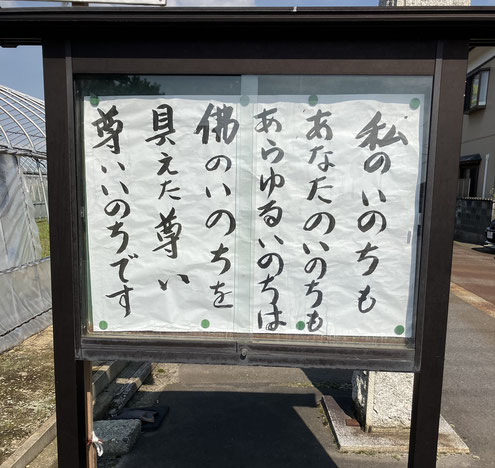 私のいのちも
あなたのいのちも
あらゆるいのちは
佛のいのちを
具えた尊い
尊いいのちです